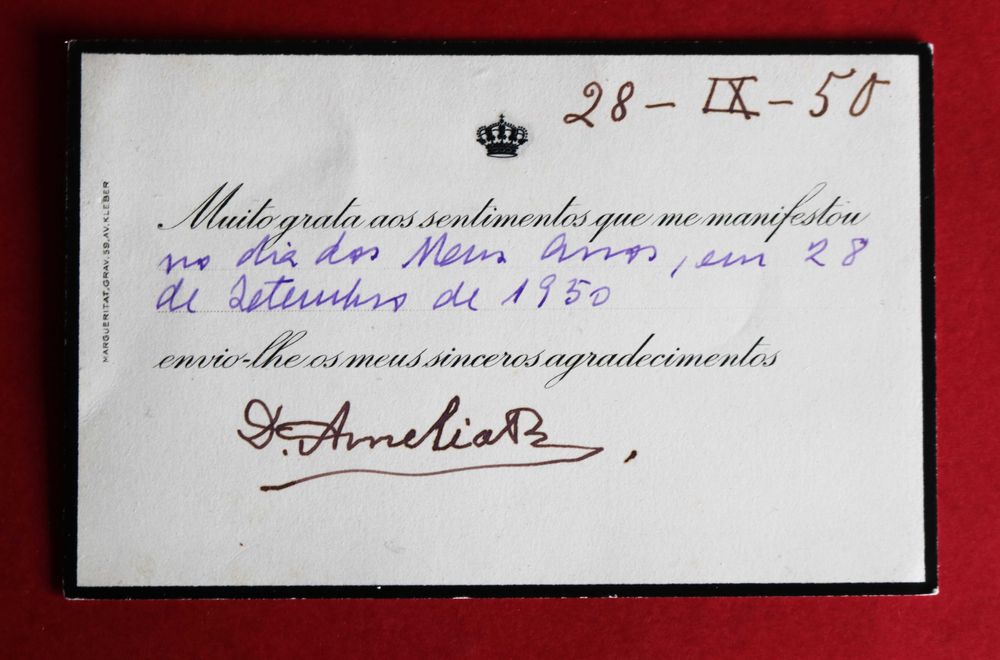 28 - IX - 50
Muito grata aos sentimentos que me manifestou
no dia dos Meus Anos, em 28
de Setembro de 1950
envio-lhe os meus sinceros agradecimentos
D. Amelia R.
MARGUERITAT, GRAV. 59, AV. KLEBER